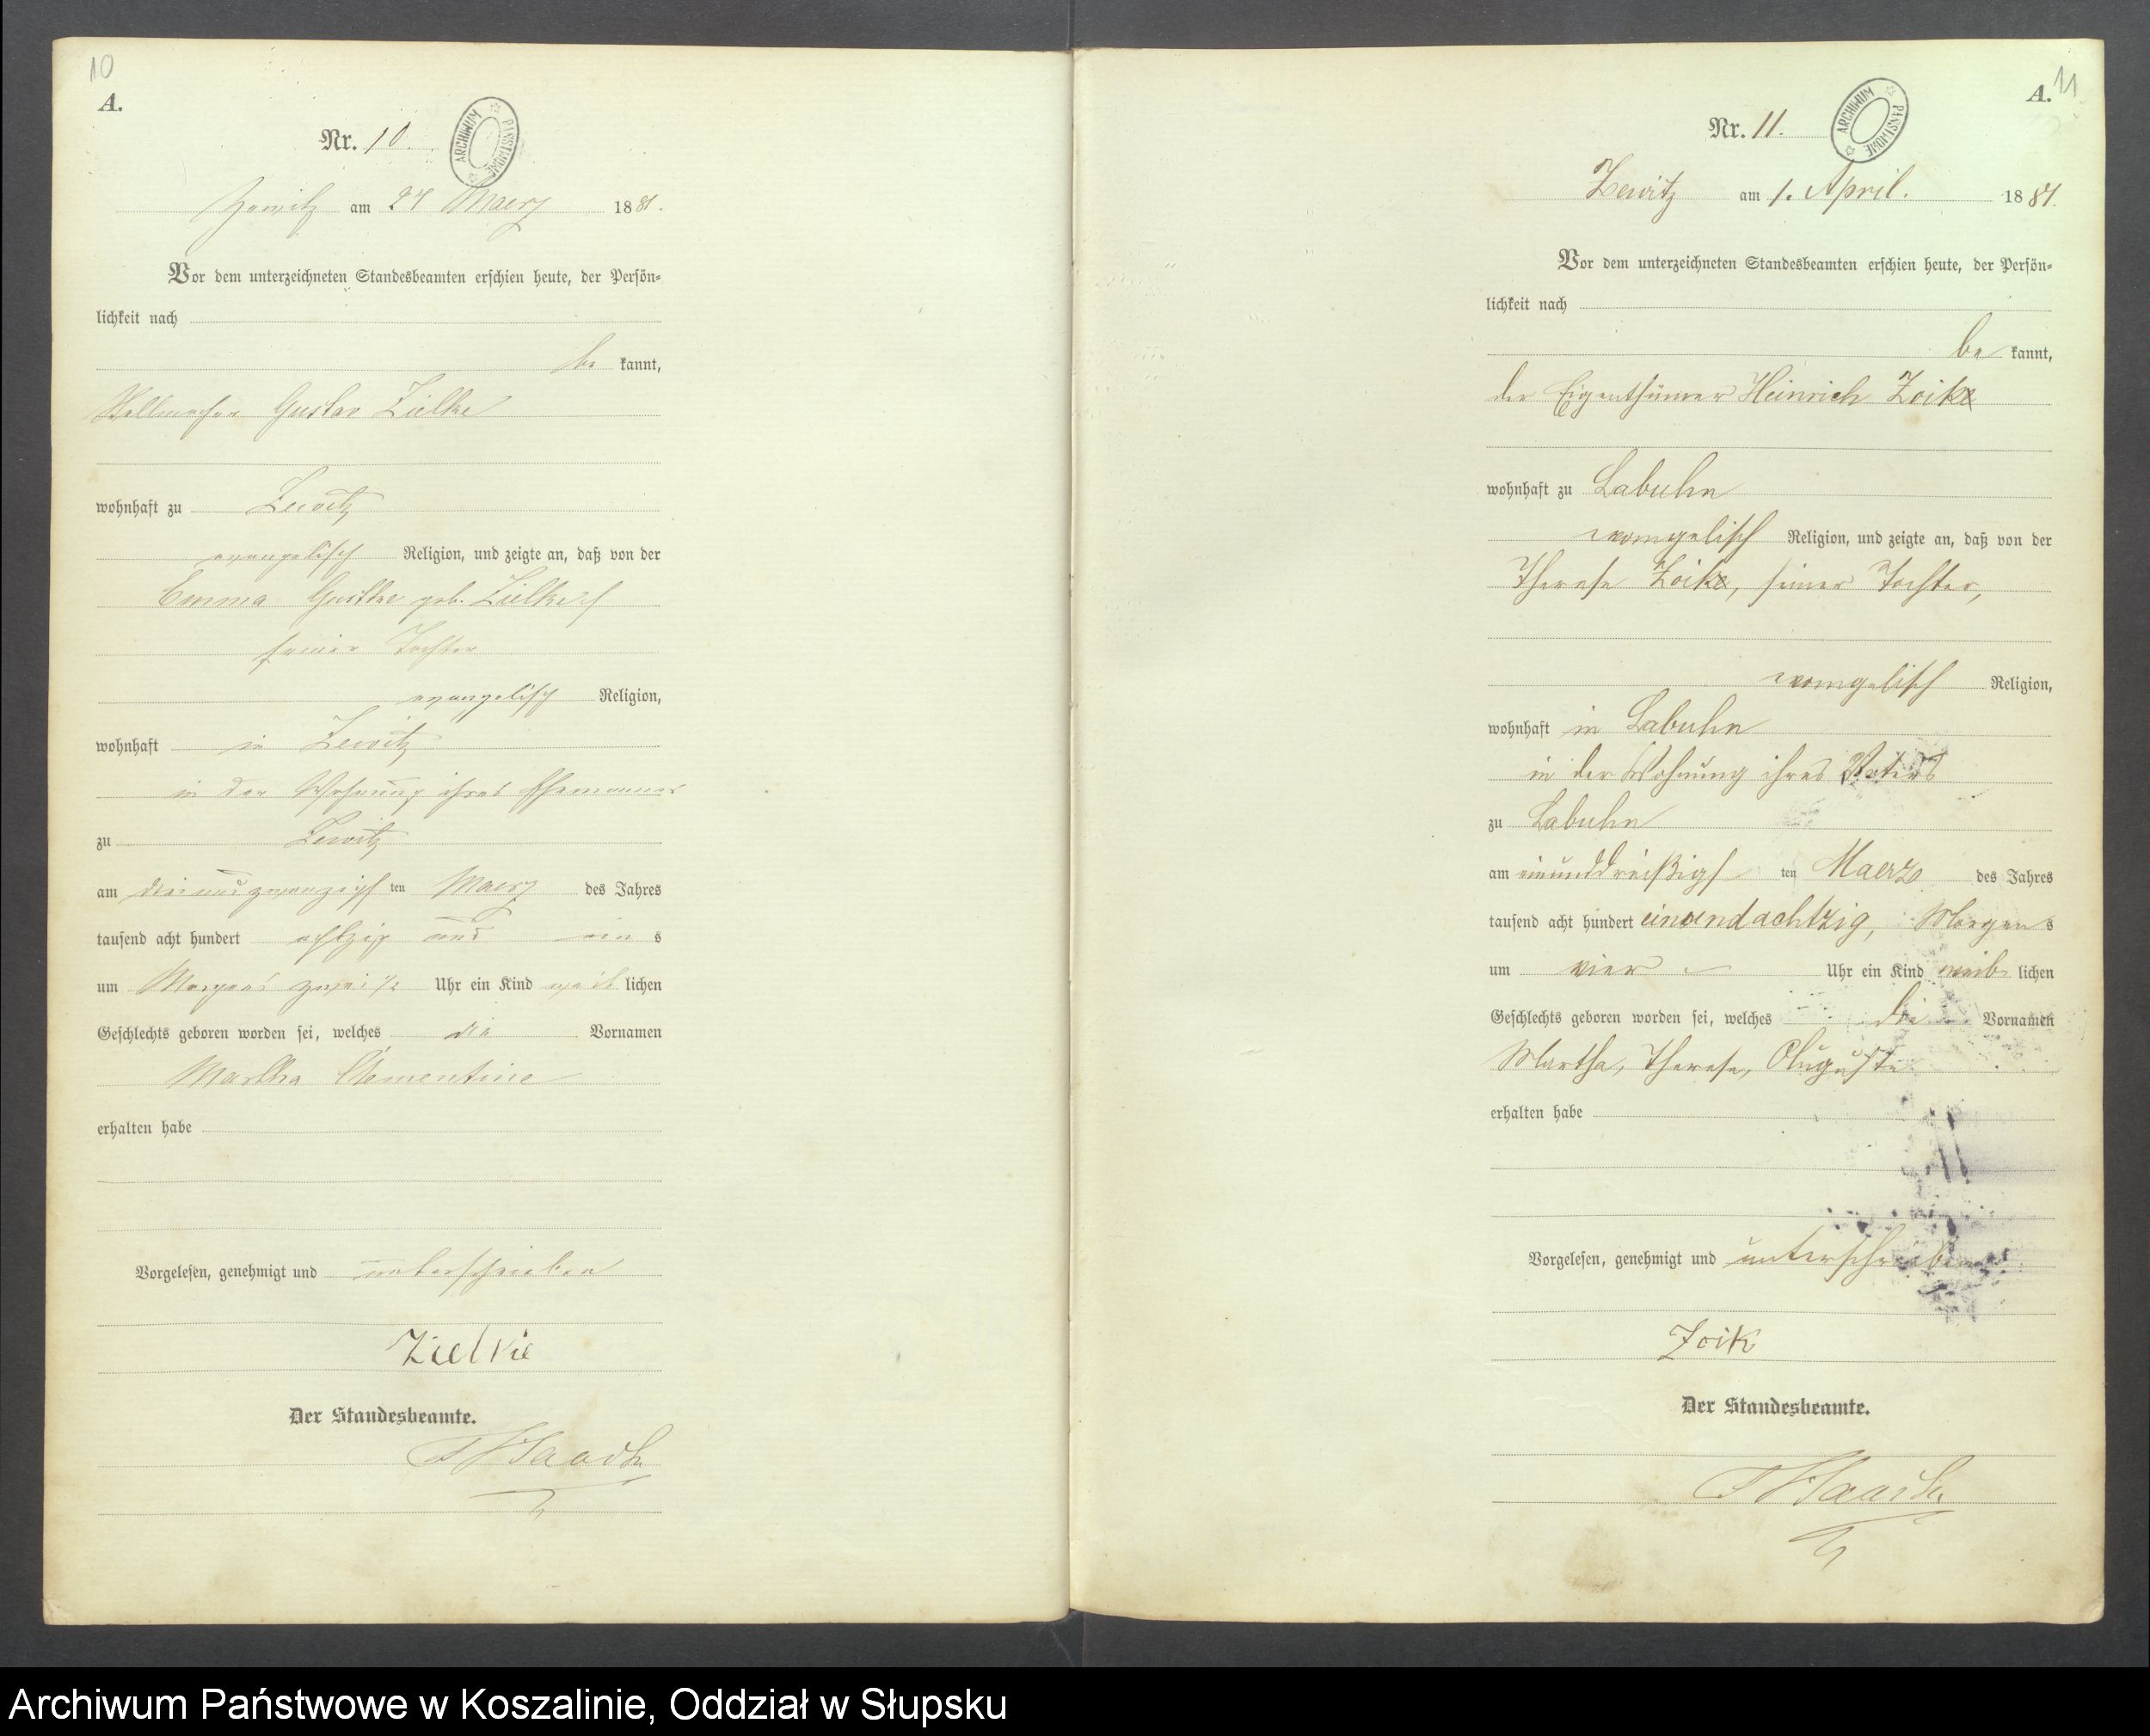 10
A.
Nr. 10.
ARCHIWUM PAŃSTWOWE
Zewitz am 24 Maerz 1881.
Vor dem unterzeichneten Standesbeamten erschien heute, der Persön-
lichkeit nach
be kannt,
Stellmacher Gustav Zielke
wohnhaft zu Zewitz
evangelisch Religion, und zeigte an, daß von der
Emma geb. Zielke
seiner Tochter
evangelisch Religion,
wohnhaft in Zewitz
in der Wohnung ihres Ehemannes
zu Zewitz
am dreiundzwanzigs ten Maerz des Jahres
tausend acht hundert achtzig und ein s
um Morgens zwei 1/2 Uhr ein Kind weib lichen
Geschlechts geboren worden sei, welches die Vornamen
Martha Clementine
erhalten habe
Vorgelesen, genehmigt und unterschrieben
Zielke
Der Standesbeamte.
11
A.
Nr. 11.
ARCHIWUM PAŃSTWOWE
Zewitz am 1. April. 1881.
Vor dem unterzeichneten Standesbeamten erschien heute, der Persön-
lichkeit nach
be kannt,
der Eigenthümer Heinrich Zoike
wohnhaft zu Labuhn
evangelisch Religion, und zeigte an, daß von der
Therese Zoike, seiner Tochter,
evangelisch Religion,
wohnhaft in Labuhn
in der Wohnung ihres Vaters
zu Labuhn
am einunddreißigs ten Maerz des Jahres
tausend acht hundert einundachtzig, Morgen s
um vier Uhr ein Kind weib lichen
Geschlechts geboren worden sei, welches die Vornamen
Martha, Therese, Auguste
erhalten habe
Vorgelesen, genehmigt und unterschrieben
Zoik
Der Standesbeamte.
Archiwum Państwowe w Koszalinie, Oddział w Słupsku